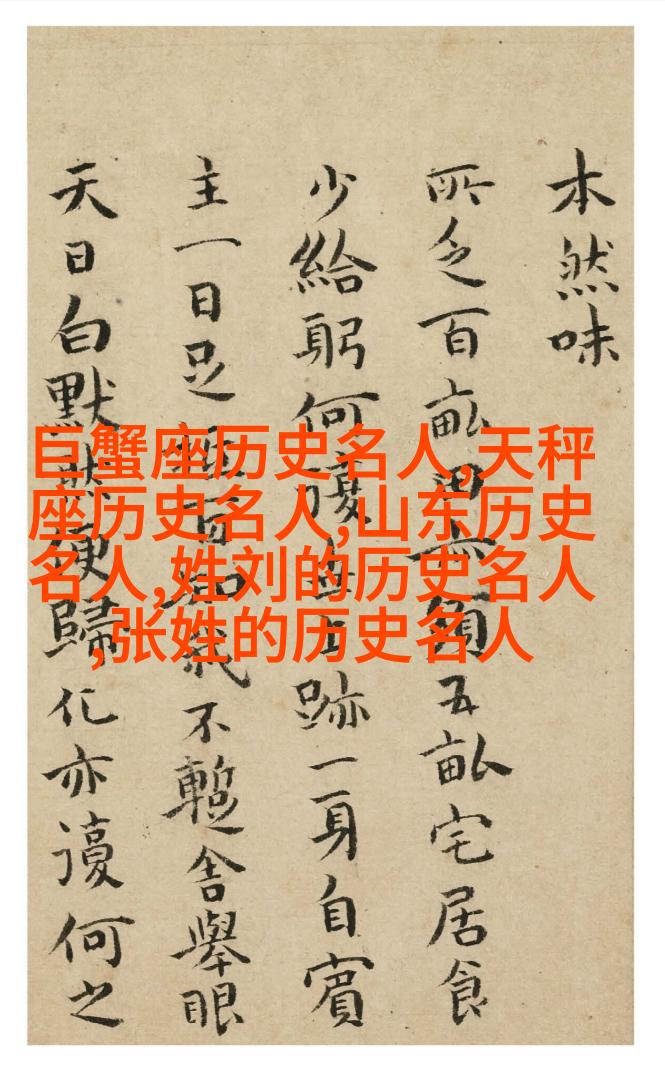 本然味
所乏百畝五畝宅居食
少給躬何復跡一身自賓
主一日足不暫舍舉眼
天日白默然便歸化亦復何之
巨蟹座历史名人,天秤
座历史名人,山东历史
名人,姓刘的历史名人
,张姓的历史名人